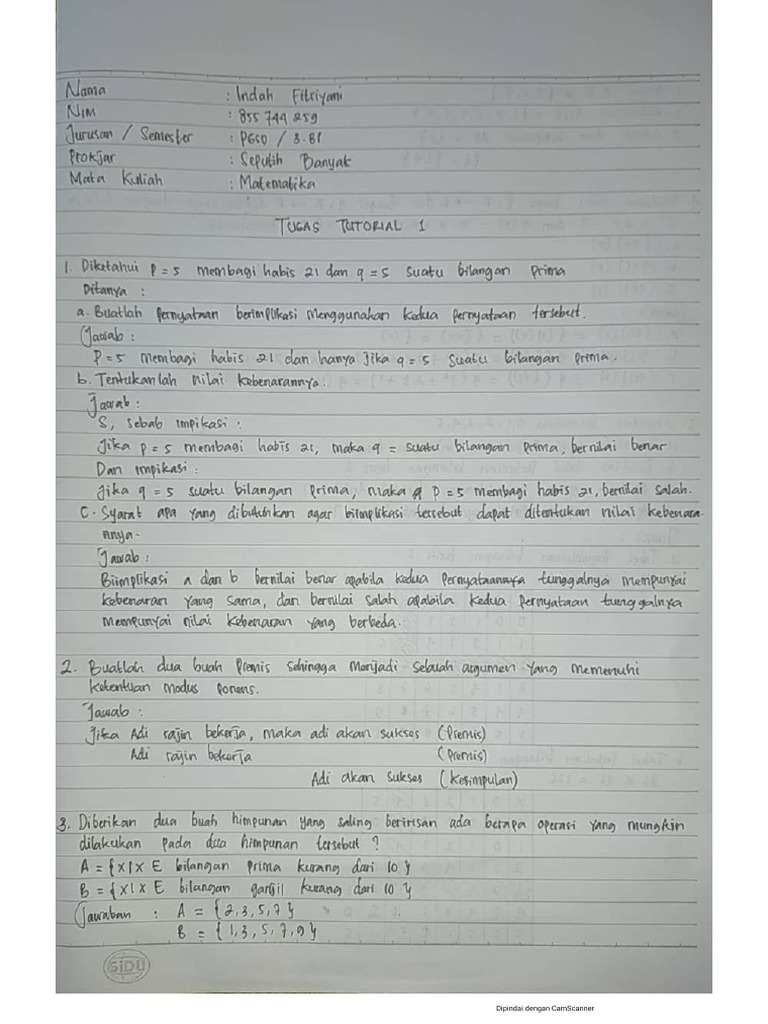 Nama : Indah Fitriyani
NIM : 855 744 259
Jurusan / Semester : PGSD / 3.BI
Pokjar : Seputih Banyak
Mata Kuliah : Matematika
TUGAS TUTORIAL 1
1. Diketahui p = 5 membagi habis 21 dan q = 5 suatu bilangan prima
Ditanya :
a. Buatlah pernyataan berimplikasi menggunakan kedua pernyataan tersebut.
Jawab :
P = 5 membagi habis 21 dan hanya jika q = 5 suatu bilangan prima.
b. Tentukanlah nilai kebenarannya.
Jawab :
S, sebab impikasi :
Jika p = 5 membagi habis 21, maka q = suatu bilangan prima, bernilai benar
Dan impikasi :
Jika q = 5 suatu bilangan prima, maka p = 5 membagi habis 21, bernilai salah.
C. Syarat apa yang dibutuhkan agar biimplikasi tersebut dapat ditentukan nilai kebenara-
nnya.
Jawab :
Biimplikasi a dan b bernilai benar apabila kedua pernyataannya tunggalnya mempunyai
kebenaran yang sama, dan bernilai salah apabila kedua pernyataan tunggalnya
mempunyai nilai kebenaran yang berbeda.
2. Buatlah dua buah premis sehingga menjadi sebuah argumen yang memenuhi
ketentuan modus ponens.
Jawab :
Jika Adi rajin bekerja, maka adi akan sukses (Premis)
Adi rajin bekerja (Premis)
Adi akan sukses (Kesimpulan)
3. Diberikan dua buah himpunan yang saling beririsan ada berapa operasi yang mungkin
dilakukan pada dua himpunan tersebut ?
A = {x | x E bilangan prima kurang dari 10}
B = {x | x E bilangan ganjil kurang dari 10}
Jawaban : A = {2,3,5,7}
B = {1,3,5,7,9}
SIDU
Dipindai dengan CamScanner